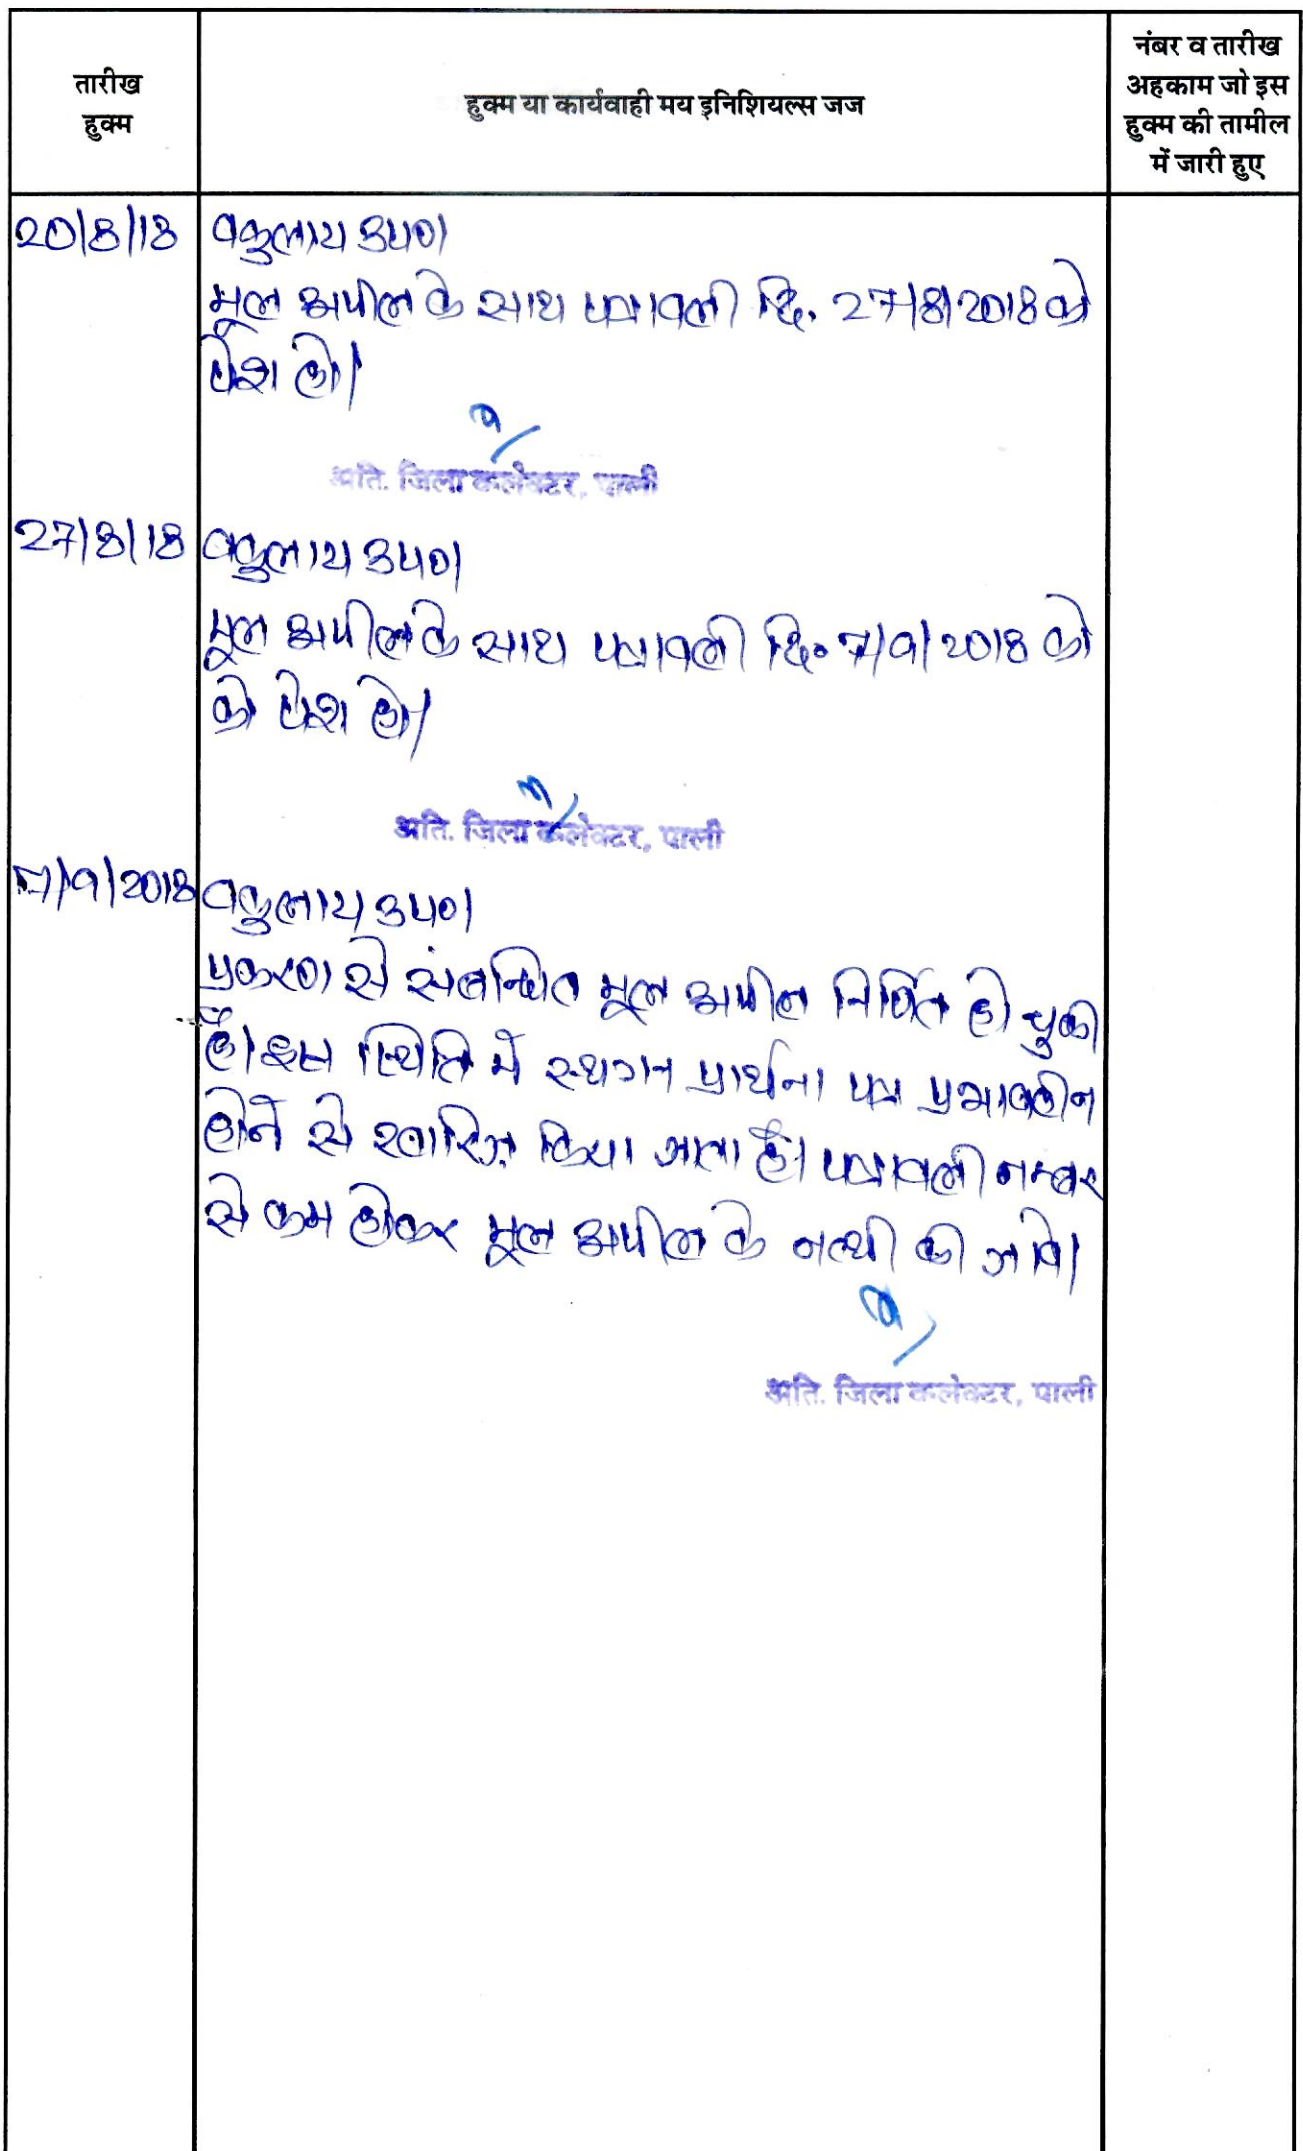 तारीख
हुक्म
हुक्म या कार्यवाही मय इनिशियल्स जज
नंबर व तारीख
अहकाम जो इस
हुक्म की तामील
में जारी हुए
20/8/18 वकुलाय उप०।
मूल अपील के साथ पत्रावली दि. 27/8/2018 को
पेश हो।
अति. जिला कलेक्टर, पाली
27/8/18 वकुलाय उप०।
मूल अपील के साथ पत्रावली दि० 7/9/2018 को
को पेश हो।
अति. जिला कलेक्टर, पाली
7/9/2018 वकुलाय उप०।
प्रकरण से संबन्धित मूल अपील निर्णित हो चुकी
है। इस स्थिति में स्थगन प्रार्थना पत्र प्रभावहीन
होने से खारिज़ किया जाता है। पत्रावली नम्बर
से कम होकर मूल अपील के नत्थी की जावे।
अति. जिला कलेक्टर, पाली